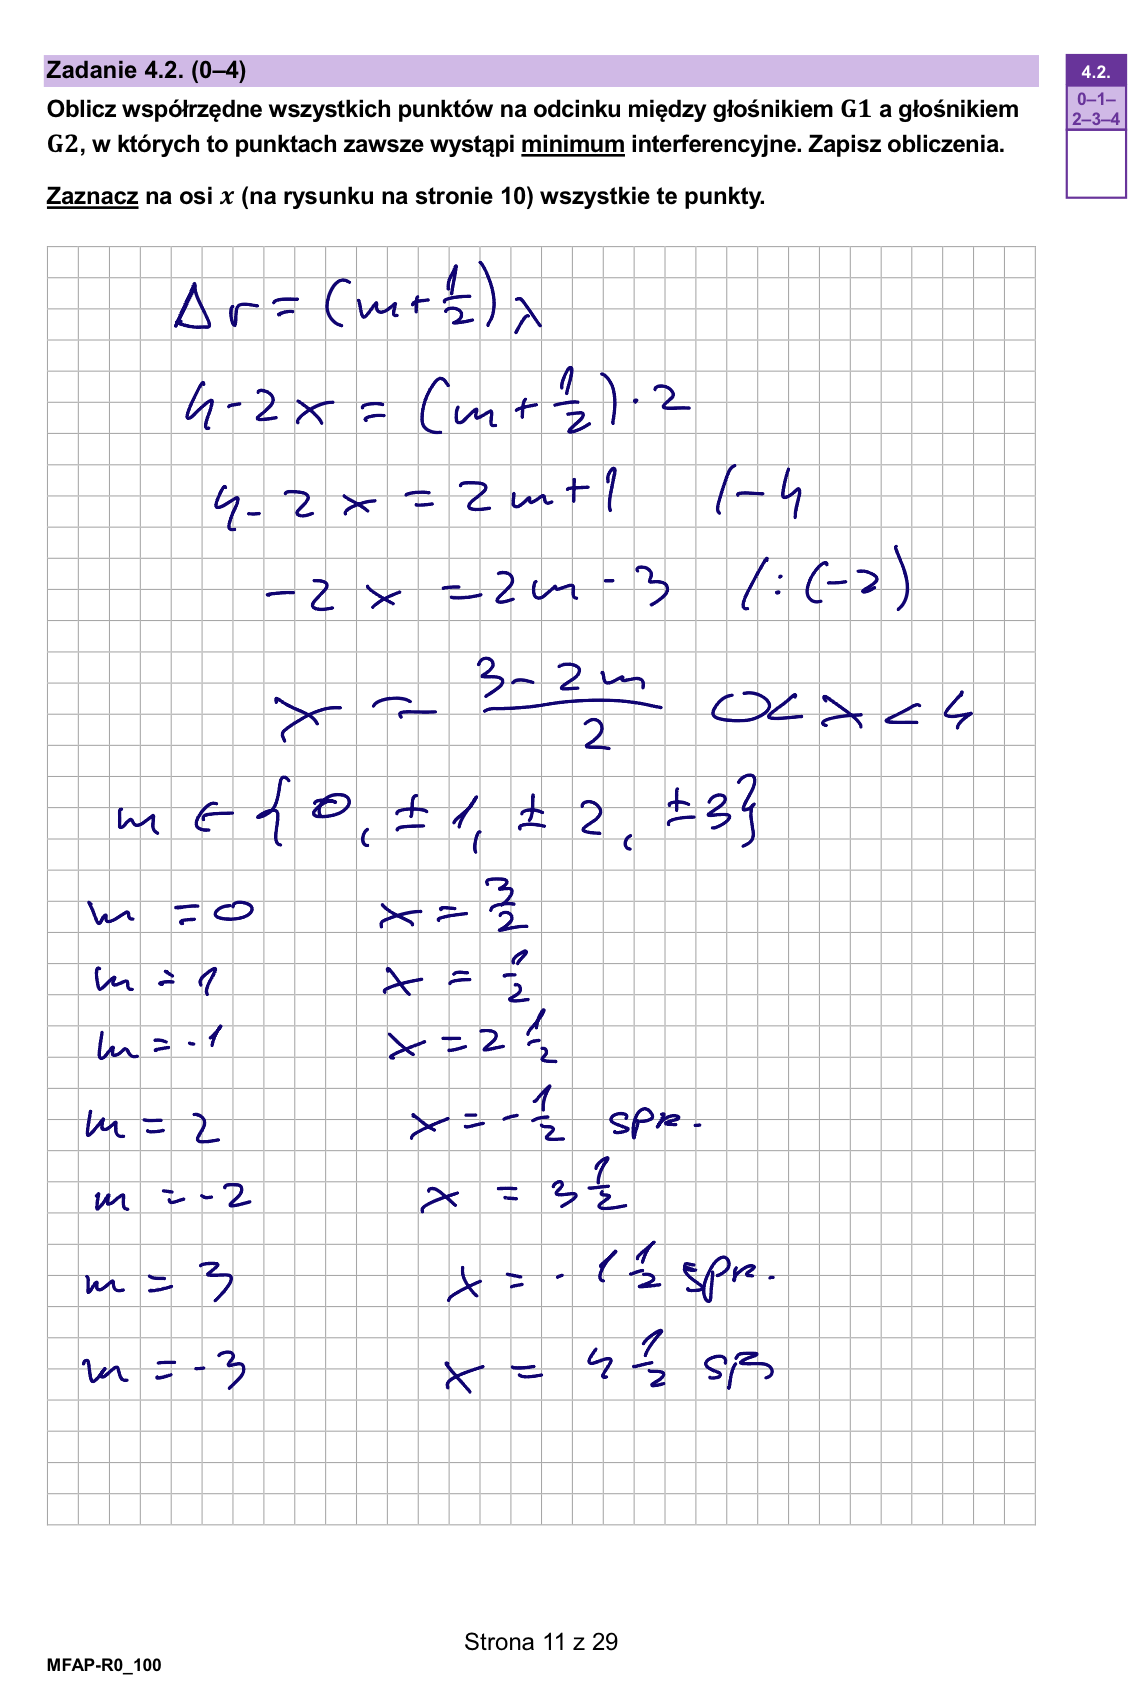 Zadanie 4.2. (0–4)
4.2.
0–1–
2–3–4
Oblicz współrzędne wszystkich punktów na odcinku między głośnikiem G1 a głośnikiem
G2, w których to punktach zawsze wystąpi minimum interferencyjne. Zapisz obliczenia.
Zaznacz na osi x (na rysunku na stronie 10) wszystkie te punkty.
Δr = (m + 1/2) λ
4 - 2x = (m + 1/2) · 2
4 - 2x = 2m + 1 / - 4
-2x = 2m - 3 / : (-2)
x = (3 - 2m)/2 0 < x < 4
m ∈ {0, ±1, ±2, ±3}
m = 0 x = 3/2
m = 1 x = 1/2
m = -1 x = 2 1/2
m = 2 x = - 1/2 spr.
m = -2 x = 3 1/2
m = 3 x = - 1 1/2 spr.
m = -3 x = 4 1/2
Strona 11 z 29
MFAP-R0_100